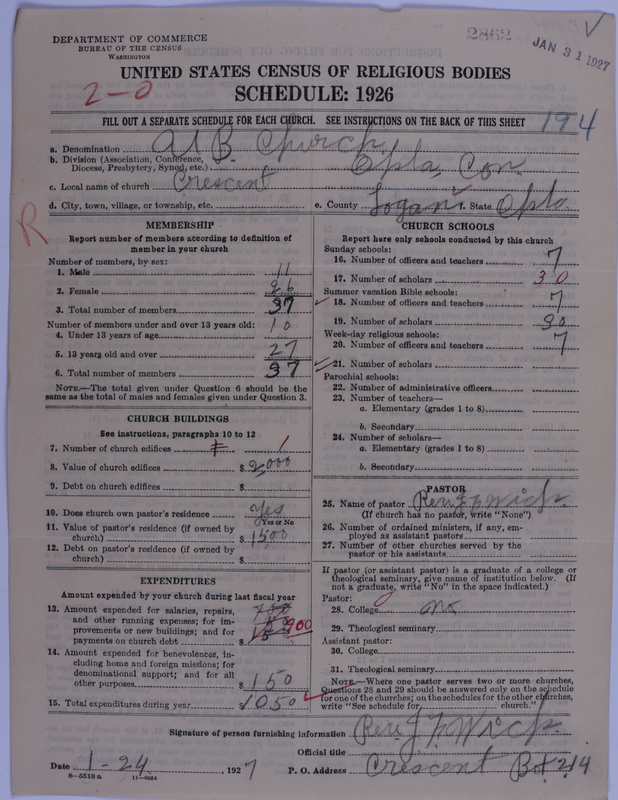 2862
JAN 31 1927
DEPARTMENT OF COMMERCE
BUREAU OF THE CENSUS
WASHINGTON
UNITED STATES CENSUS OF RELIGIOUS BODIES
SCHEDULE: 1926
2-0
FILL OUT A SEPARATE SCHEDULE FOR EACH CHURCH. SEE INSTRUCTIONS ON THE BACK OF THIS SHEET
194
a. Denomination U B Church
b. Division (Association, Conference, Diocese, Presbytery, Synod, etc.) Okla. Con.
c. Local name of church Crescent
d. City, town, village, or township, etc. e. County Logan f. State Okla
R
MEMBERSHIP
Report number of members according to definition of
member in your church
Number of members, by sex:
1. Male 11
2. Female 26
3. Total number of members 37
Number of members under and over 13 years old:
4. Under 13 years of age 10
5. 13 years old and over 27
6. Total number of members 37
NOTE.—The total given under Question 6 should be the
same as the total of males and females given under Question 3.
CHURCH BUILDINGS
See instructions, paragraphs 10 to 12
7. Number of church edifices 1
8. Value of church edifices $ 2,000
9. Debt on church edifices $
10. Does church own pastor's residence yes
Yes or No
11. Value of pastor's residence (if owned by
church) $ 1500
12. Debt on pastor's residence (if owned by
church) $
EXPENDITURES
Amount expended by your church during last fiscal year
13. Amount expended for salaries, repairs,
and other running expenses; for im-
provements or new buildings; and for
payments on church debt $ 900
14. Amount expended for benevolences, in-
cluding home and foreign missions; for
denominational support; and for all
other purposes $ 150
15. Total expenditures during year $ 1050
CHURCH SCHOOLS
Report here only schools conducted by this church
Sunday schools:
16. Number of officers and teachers 7
17. Number of scholars 30
Summer vacation Bible schools:
18. Number of officers and teachers 7
19. Number of scholars 30
Week-day religious schools:
20. Number of officers and teachers 7
21. Number of scholars
Parochial schools:
22. Number of administrative officers
23. Number of teachers—
a. Elementary (grades 1 to 8)
b. Secondary
24. Number of scholars—
a. Elementary (grades 1 to 8)
b. Secondary
PASTOR
25. Name of pastor Rev. J F
(If church has no pastor, write "None")
26. Number of ordained ministers, if any, em-
ployed as assistant pastors
27. Number of other churches served by the
pastor or his assistants
If pastor (or assistant pastor) is a graduate of a college or
theological seminary, give name of institution below. (If
not a graduate, write "No" in the space indicated.)
Pastor:
28. College no
29. Theological seminary
Assistant pastor:
30. College
31. Theological seminary
NOTE.—Where one pastor serves two or more churches,
Questions 28 and 29 should be answered only on the schedule
for one of the churches; on the schedules for the other churches,
write "See schedule for church."
Signature of person furnishing information Rev. J F
Official title
Date 1-24, 1927 P. O. Address Crescent Box 214
8—5518 a 11—9064